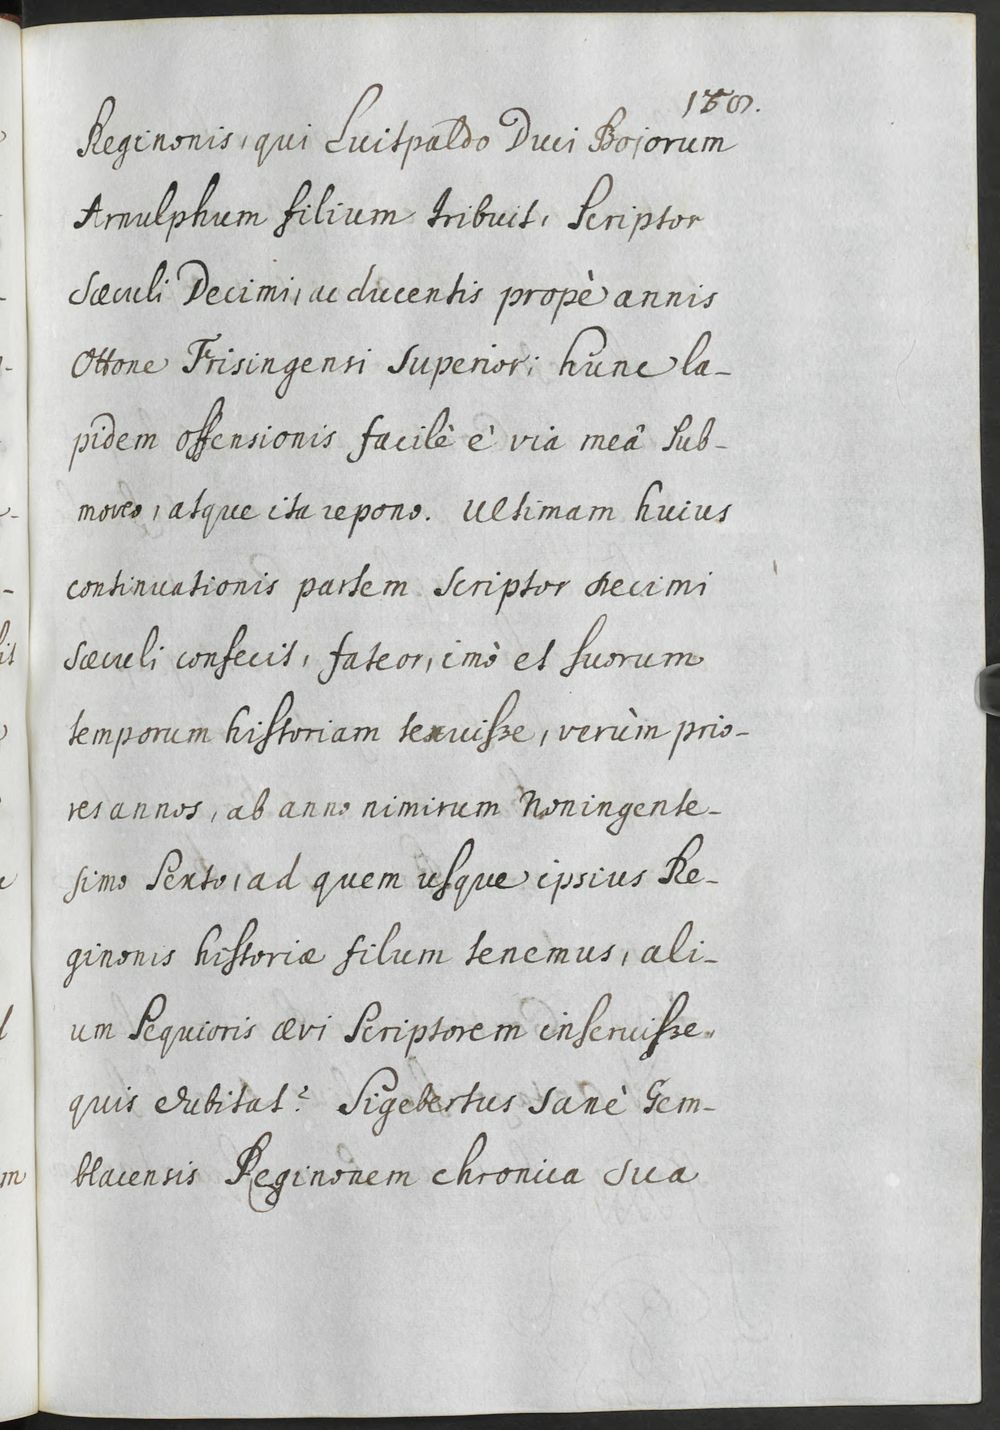 Reginonis, qui Luitpaldo Duci Bojorum
Arnulphum filium tribuit, Scriptor
Sæculi Decimi, ac ducentis propè annis
Ottone Frisingensi Superior; hunc la-
pidem offensionis facilè è via meâ Sub-
moveo, atque ita repono. Ultimam huius
continuationis partem Scriptor decimi
Sæculi confecit, fateor, imò et suorum
temporum historiam texuisse, verùm prio-
res annos, ab anno nimirum Noningente-
simo Sexto, ad quem usque ipsius Re-
ginonis historiæ filum tenemus, ali-
um Sequioris ævi Scriptorem inseruisse
quis dubitat? Sigebertus Sanè Gem-
blacensis Reginonem chronica sua